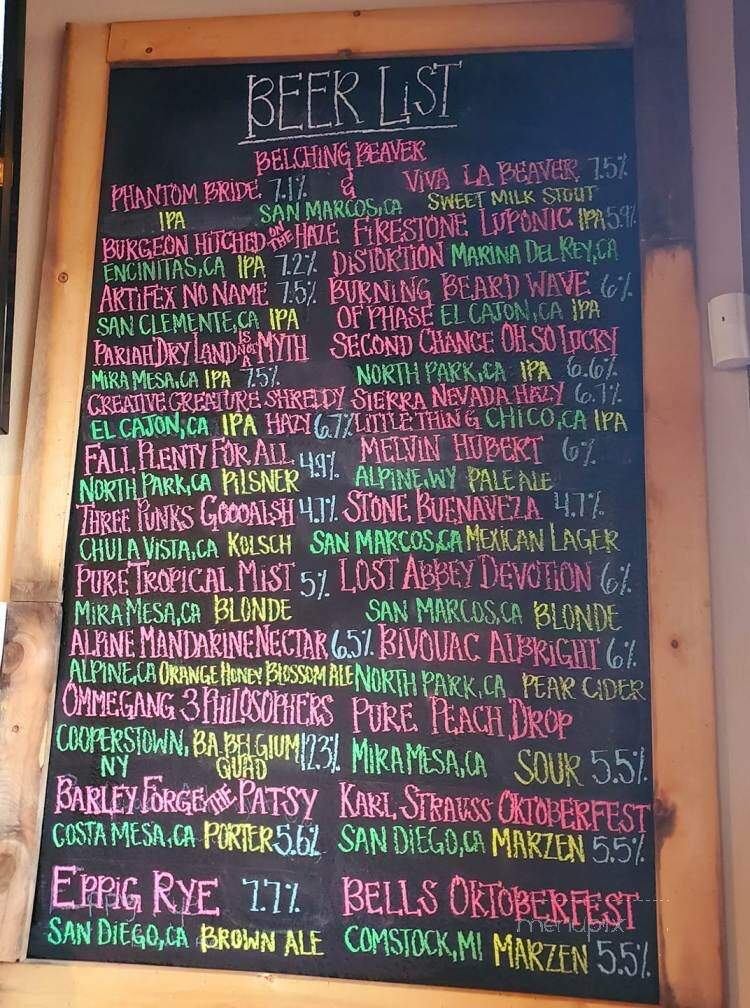 BEER LIST
BELCHING BEAVER
PHANTOM BRIDE 7.1% & VIVA LA BEAVER 7.5%
IPA SAN MARCOS, CA SWEET MILK STOUT
BURGEON HITCHED ON THE HAZE
ENCINITAS, CA IPA 7.2%
FIRESTONE LUPONIC IPA 5.9%
DISTORTION MARINA DEL REY, CA
ARTIFEX NO NAME 7.5%
SAN CLEMENTE, CA IPA
BURNING BEARD WAVE 6%
OF PHASE EL CAJON, CA IPA
PARIAH DRY LAND IS NOT A MYTH
MIRA MESA, CA IPA 7.5%
SECOND CHANCE OH SO LUCKY
NORTH PARK, CA IPA 6.6%
CREATIVE CREATURE SHREDDY
EL CAJON, CA IPA HAZY 6.7%
SIERRA NEVADA HAZY 6.7%
LITTLE THING CHICO, CA IPA
FALL PLENTY FOR ALL 4.9%
NORTH PARK, CA PILSNER
MELVIN HUBERT 6%
ALPINE, WY PALE ALE
THREE PUNKS GOOOALSH 4.7%
CHULA VISTA, CA KOLSCH
STONE BUENAVEZA 4.7%
SAN MARCOS, CA MEXICAN LAGER
PURE TROPICAL MIST 5%
MIRA MESA, CA BLONDE
LOST ABBEY DEVOTION 6%
SAN MARCOS, CA BLONDE
ALPINE MANDARINE NECTAR 6.5%
ALPINE, CA ORANGE HONEY BLOSSOM ALE
BIVOUAC ALBRIGHT 6%
NORTH PARK, CA PEAR CIDER
OMMEGANG 3 PHILOSOPHERS
COOPERSTOWN, NY B.A. BELGIUM QUAD 12.3%
PURE PEACH DROP
MIRA MESA, CA SOUR 5.5%
BARLEY FORGE THE PATSY
COSTA MESA, CA PORTER 5.6%
KARL STRAUSS OKTOBERFEST
SAN DIEGO, CA MARZEN 5.5%
EPPIG RYE 7.7%
SAN DIEGO, CA BROWN ALE
BELLS OKTOBERFEST
COMSTOCK, MI MARZEN 5.5%
menupix